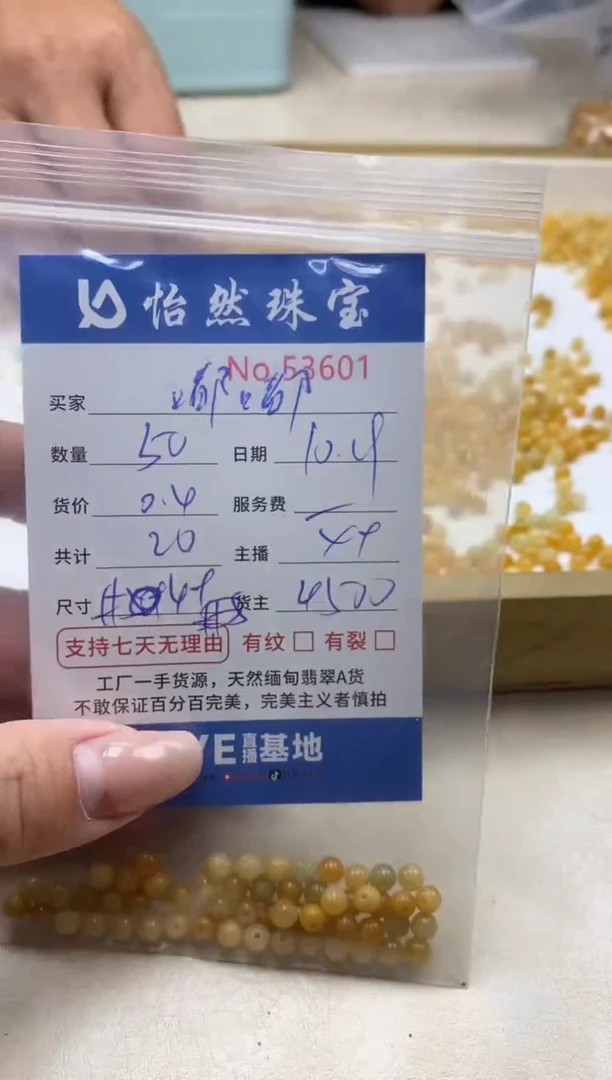 怡然珠宝
No.53601
买家 嘟嘟
数量 50 日期 10.4
货价 0.4 服务费
共计 20 主播
尺寸 货主 4500
支持七天无理由 有纹 □ 有裂 □
工厂一手货源，天然缅甸翡翠A货
不敢保证百分百完美，完美主义者慎拍
YE直播基地